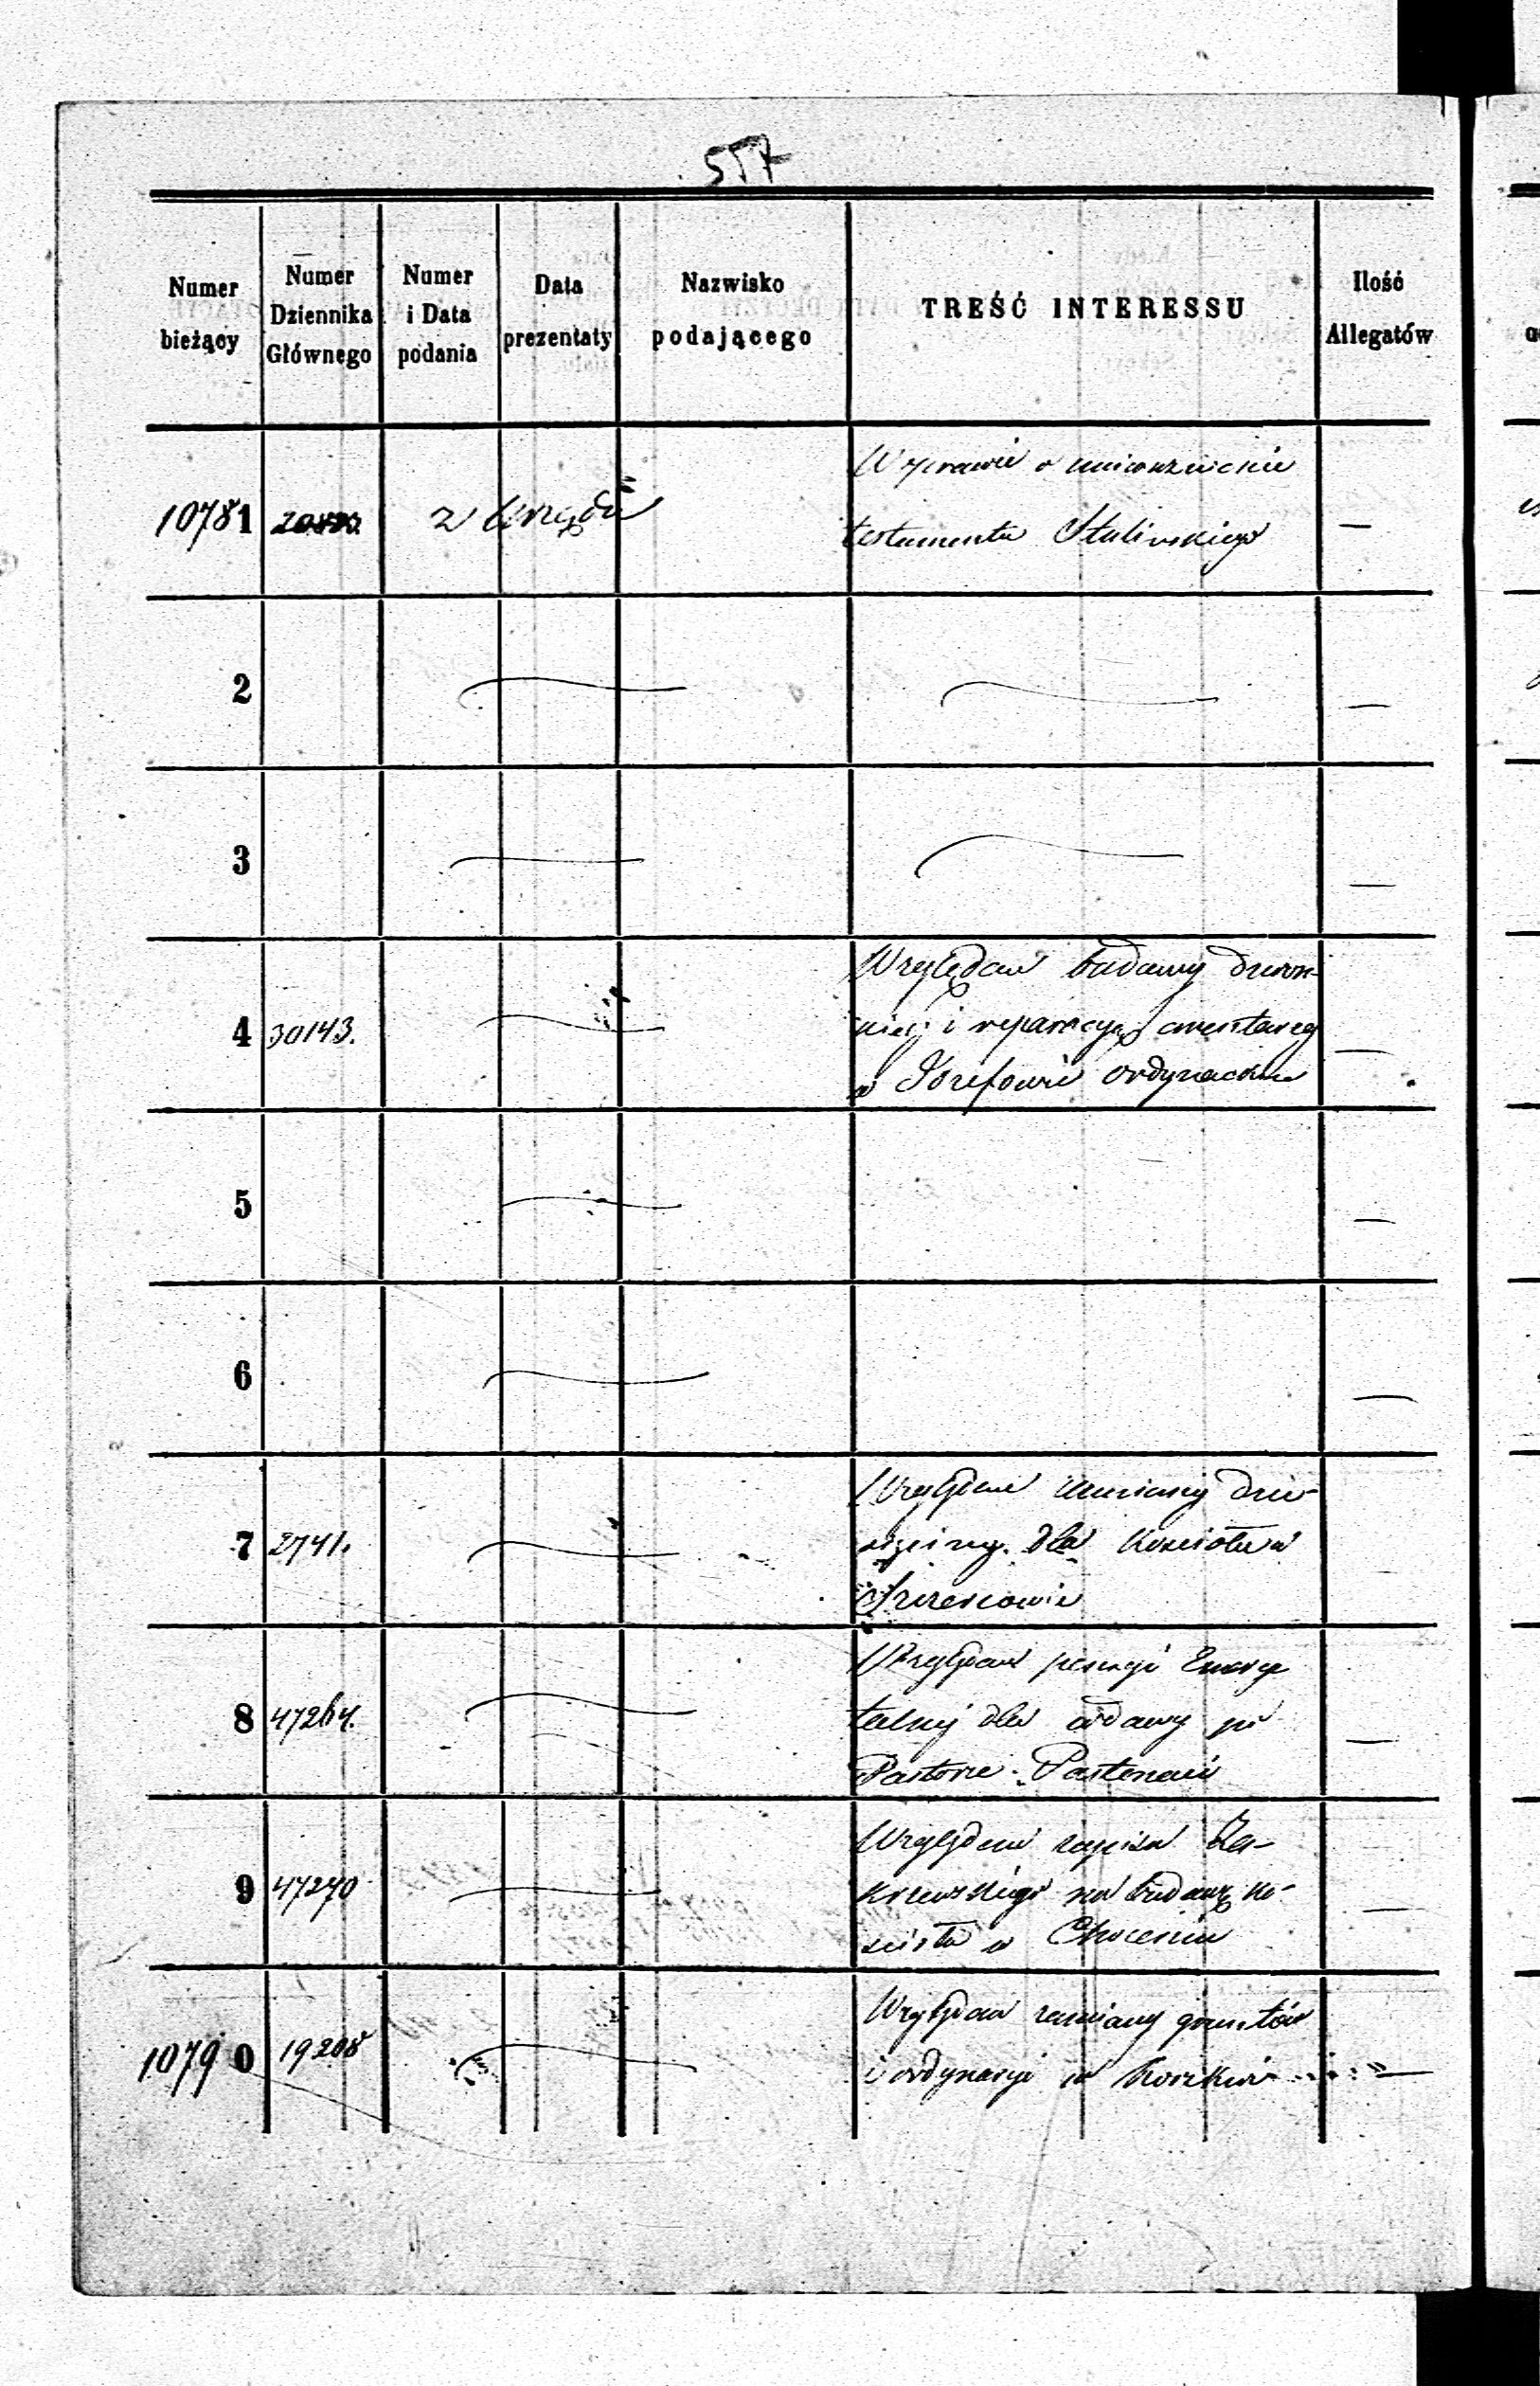 557
Numer bieżący
Numer Dziennika Głównego
Numer i Data podania
Data prezentaty
Nazwisko podającego
TREŚĆ INTERESSU
Ilość Allegatów
10781
z Urzędu
W sprawie o unieważnienie
testamentu
—
2
—
3
—
4 30143.
Względem budowy dzwon-
nicy i reparacyi cmentarzy
w Józefowie ordynackim
—
5
—
6
—
7 2741.
Względem zamiany dzie-
sięciny dla Kościoła w
8 47264.
Względem pensyi Emery-
talnej dla wdowy po
Pastorze
—
9 47270
Względem zapisu Za-
krzewskiego na budowę ko-
ścioła w Choceniu
—
10790 19208
Względem zamiany gruntów
i ordynaryi w
—